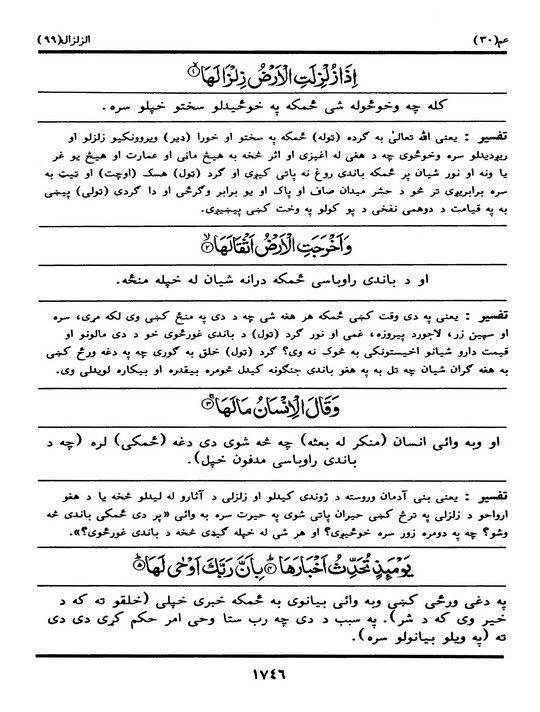 عم(٣٠)
الزلزال(٩٩)
اِذَا زُلْزِلَتِ الْاَرْضُ زِلْزَالَهَا ۙ﴿١﴾
کله چه وخوځوله شی ځمکه په خوځیدلو سختو خپلو سره.
تفسیر : یعنی الله تعالیٰ به گرده (توله) ځمکه په سختو او خورا (ډیر) ویروونکیو زلزلو او
ریږدیدلو سره وخوځوی چه د هغی له اغیزی او اثر څخه به هیڅ مانۍ او عمارت او هیڅ یو غر
یا ونه او نور شیان پر ځمکه باندی روغ نه پاتی کیږی او گرد (تول) هسک (اوچت) او تیټ به
سره برابریږی تر څو د حشر میدان صاف او پاک او یو برابر وگرځی او دا گردی (تولی) پیښی
به په قیامت د دوهمی نفخی د پو کولو په وخت کښی پیښیږی.
وَاَخْرَجَتِ الْاَرْضُ اَثْقَالَهَا ۙ﴿٢﴾
او د باندی راوباسی ځمکه درانه شیان له خپله منځه.
تفسیر : یعنی په دی وقت کښی ځمکه هر هغه شی چه د دی په منځ کښی وی لکه مړی، سره
او سپین زر، لاجورد پیروزه، غمی او نور گرد (تول) د باندی غورځوی خو د دی مالونو او
قیمت دارو شیانو اخیستونکی به څوک نه وی؟ گرد (تول) خلق به گوری چه په دغه ورځ کښی
به هغه گران شیان چه تل به په هغو باندی جنگونه کیدل څومره بیقدره او بیکاره لویدلی وی.
وَقَالَ الْاِنْسَانُ مَا لَهَا ۚ﴿٣﴾
او وبه وائی انسان (منکر له بعثه) چه څه شوی دی دغه (ځمکی) لره (چه د
باندی راوباسی مدفون خپل).
تفسیر : یعنی بنی آدمان وروسته د ژوندی کیدلو او زلزلی د آثارو له لیدلو څخه یا د هغو
ارواحو د زلزلی په ترڅ کښی حیران پاتی شوی په حیرت سره به وائی «پر دی ځمکی باندی څه
وشو؟ چه په دومره زور سره خوځیږی؟ او هر شی له خپله گیډی څخه د باندی غورځوی؟».
يَوْمَئِذٍ تُحَدِّثُ اَخْبَارَهَا ۙ﴿٤﴾ بِاَنَّ رَبَّكَ اَوْحٰى لَهَا ؕ﴿٥﴾
په دغی ورځی کښی وبه وائی بیانوی به ځمکه خبری خپلی (خلقو ته که د
خیر وی که د شر). په سبب د دی چه رب ستا وحی امر حکم کړی دی دی
ته (په ویلو بیانولو سره).
١٧٤٦